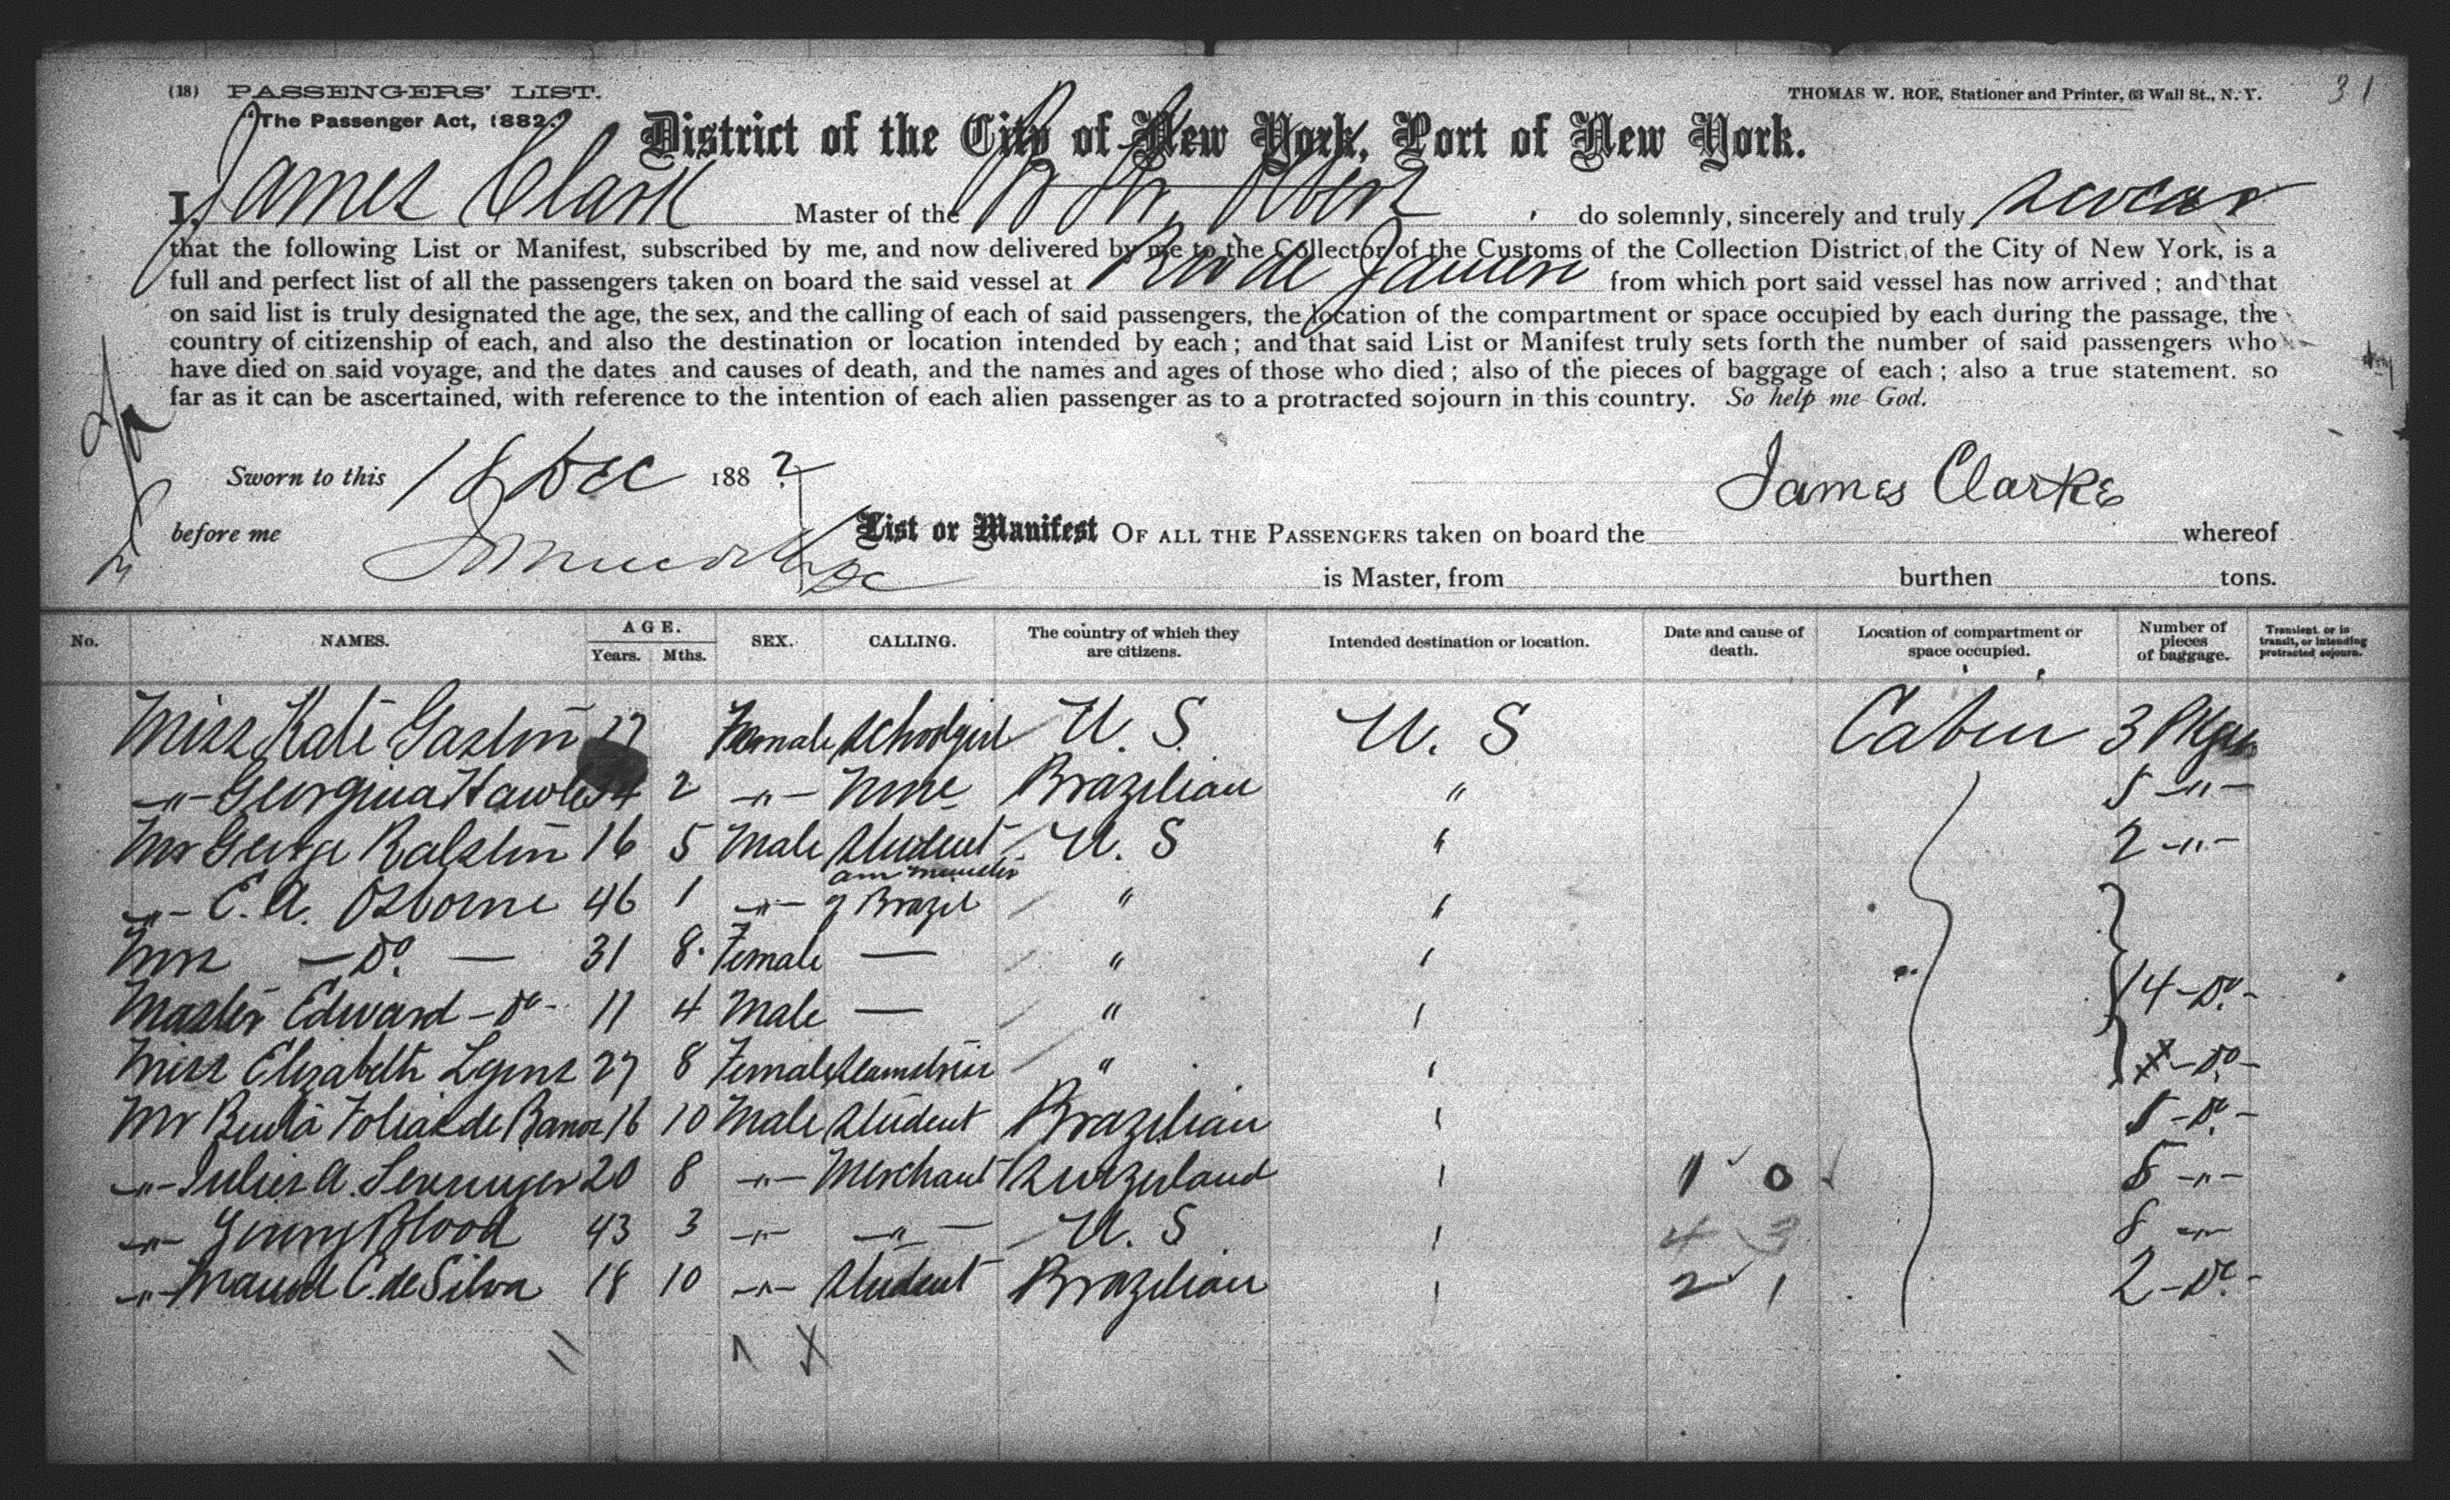 (18) PASSENGERS' LIST. THOMAS W. ROE, Stationer and Printer, 63 Wall St., N. Y. 31
"The Passenger Act, 1882."
District of the City of New York, Port of New York.
I, James Clark Master of the Br Str, do solemnly, sincerely and truly swear
that the following List or Manifest, subscribed by me, and now delivered by me to the Collector of the Customs of the Collection District of the City of New York, is a
full and perfect list of all the passengers taken on board the said vessel at Rio de Janeiro from which port said vessel has now arrived; and that
on said list is truly designated the age, the sex, and the calling of each of said passengers, the location of the compartment or space occupied by each during the passage, the
country of citizenship of each, and also the destination or location intended by each; and that said List or Manifest truly sets forth the number of said passengers who
have died on said voyage, and the dates and causes of death, and the names and ages of those who died; also of the pieces of baggage of each; also a true statement, so
far as it can be ascertained, with reference to the intention of each alien passenger as to a protracted sojourn in this country. So help me God.
Sworn to this 18 Dec 188
James Clarke
before me List or Manifest OF ALL THE PASSENGERS taken on board the whereof
is Master, from burthen tons.
No. NAMES. AGE. Years. Mths. SEX. CALLING. The country of which they are citizens. Intended destination or location. Date and cause of death. Location of compartment or space occupied. Number of pieces of baggage. Transient, or in transit, or intending protracted sojourn.
Miss Kate Gaston 17 Female Schoolgirl U. S. U. S Cabin 3 Pkgs
-"- Georgina 2 -"- None Brazilian " 5 -"-
Mr George Ralston 16 5 Male Student U. S " 2 -"-
-"- E. A. Osborne 46 1 -"- am minister of Brazil " "
Mrs - Do. - 31 8 Female — " "
Master Edward - Do - 11 4 Male — " " 14 - Do. -
Miss Elizabeth Lyons 27 8 Female Seamstress " " - Do. -
Mr 16 10 Male Student Brazilian " - Do. -
-"- Julius A. 20 8 -"- Merchant Switzerland " 1 0 -"-
-"- Blood 43 3 -"- -"- U. S " 4 3 8 -"-
-"- Manoel C. de Silva 18 10 -"- Student Brazilian " 2 1 2 - Do. -
11